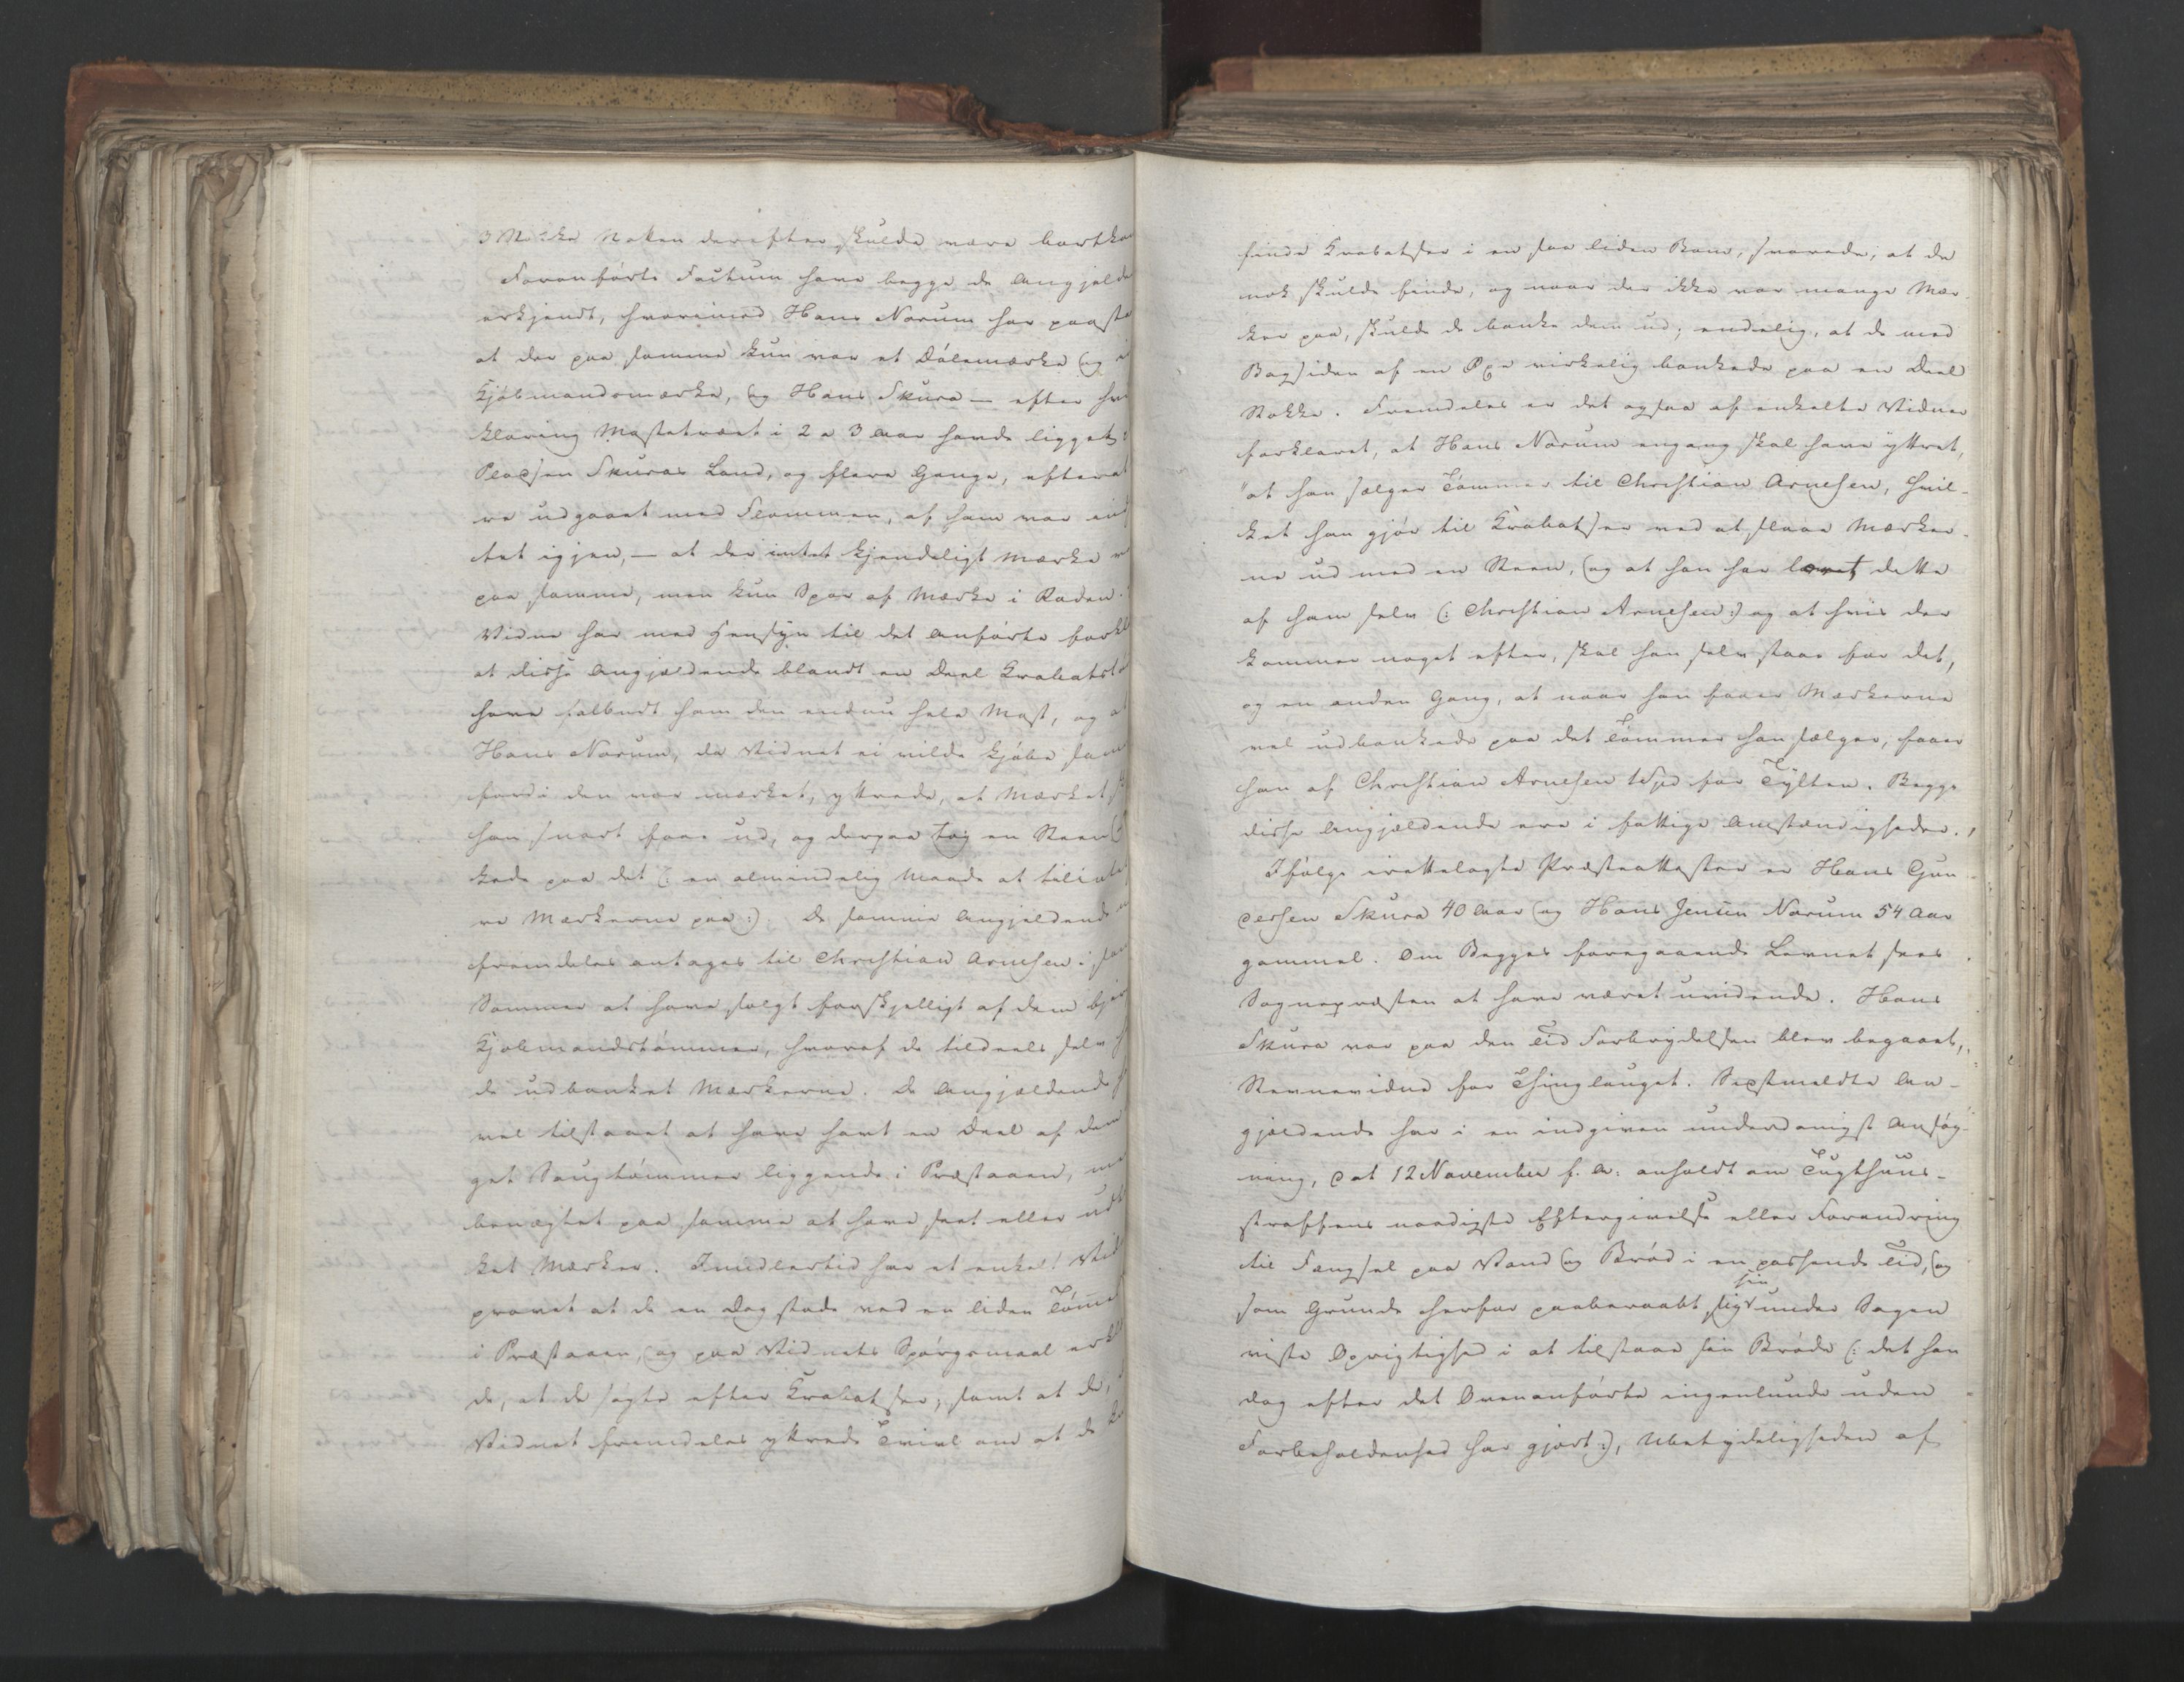 3 Stokke Natten derefter skulde være bortkom
Foranførte Factum have begge de Angjælde
erkjendt, hvorimod Hans Norum har paasta
at der paa samme kun var et Dølemærke og
Kjøbmandsmærke, og Hans Skura – efter hvi
klaring Mastetræet i 2 a 3 Aar havde ligget
Pladsen Skuras Land, og flere Gange, efterat
re udgaaet med Flommen, af ham var
tet igjen, – at der intet kjendeligt Mærke v
paa samme, men kun Spor af Mærke i Roden.
Vidne har med Hensyn til det Anførte forkl
at disse Angjældende blandt en Deel Krabatst
have falbudt ham den endnu hele Mast, og at
Hans Norum, da Vidnet ei vilde kjøbe sam
fordi den var mærket, yttrede, at Mærket
han snart faae ud, og derpaa tog en Steen
kede paa det (: en almindelig Maade at tilinte
re Mærkerne paa :) De samme Angjældende
fremdeles antages til Christian Arnesen i
Sommer at have solgt forskjelligt af dem
Kjøbmandstømmer, hvoraf de tildeels selv h
de udbanket Mærkerne. De Angjældende h
vel tilstaaet at have havt en Deel af dem
get Saugtømmer liggende i Præstaaen, m
benægtet paa samme at have seet eller
ket Mærker. Imidlertid har et enkelt Vid
provet at de en Dag stode ved en liden Tømm
i Præstaaen, og paa Vidnets Spørgsmaal erkl
de, at de søgte efter Krabatser, samt at de,
Vidnet fremdeles yttrede Tvivl om at de
finde Krabatser i en saa liden Bom, svarede, at de
nok skulde finde, og naar der ikke var mange Mær-
ker paa, skulde de banke dem ud; endelig, at de med
Bagsiden af en Øxe virkelig bankede paa en Deel
Stokke. Fremdeles er det ogsaa af enkelte Vidner
forklaret, at Hans Norum engang skal have yttret,
"at han sælger Tømmer til Christian Arnesen, hvil-
ket han gjør til Krabatser ved at slaae Mærker-
ne ud med en Steen, og at han har lært dette
af ham selv (: Christian Arnesen :) og at hvis der
kommer noget efter, skal han selv staae for det,
og en anden Gang, at naar han faaer Mærkerne
vel udbankede paa det Tømmer han sælger, faaer
han af Christian Arnesen 1 Spd for Tylten. Begge
disse Angjældende ere i fattige Omstændigheder.
Ifølge irettelagte Præsteattester er Hans Gun-
dersen Skura 40 Aar og Hans Jensen Norum 54 Aar
gammel. Om Begges foregaaende Levnet sees
Sognepræsten at have været uvidende. Hans
Skura var paa den Tid Forbrydelsen blev begaaet,
Stevnevidne for Thinglauget. Sidstmeldte An-
gjældende har i en indgiven underdanigst Ansøg-
ning, dat 12 November f. A. anholdt om Tugthuus-
straffens naadigste Eftergivelse eller Forandring
til Fængsel paa Vand og Brød i en passende Tid, og
som Grunde herfor paaberaabt sig sin under Sagen
viste Oprigtighed i at tilstaae sin Brøde (: det han
dog efter det Ovenanførte ingenlunde uden
Forbeholdenhed har gjort :), Ubetydeligheden af